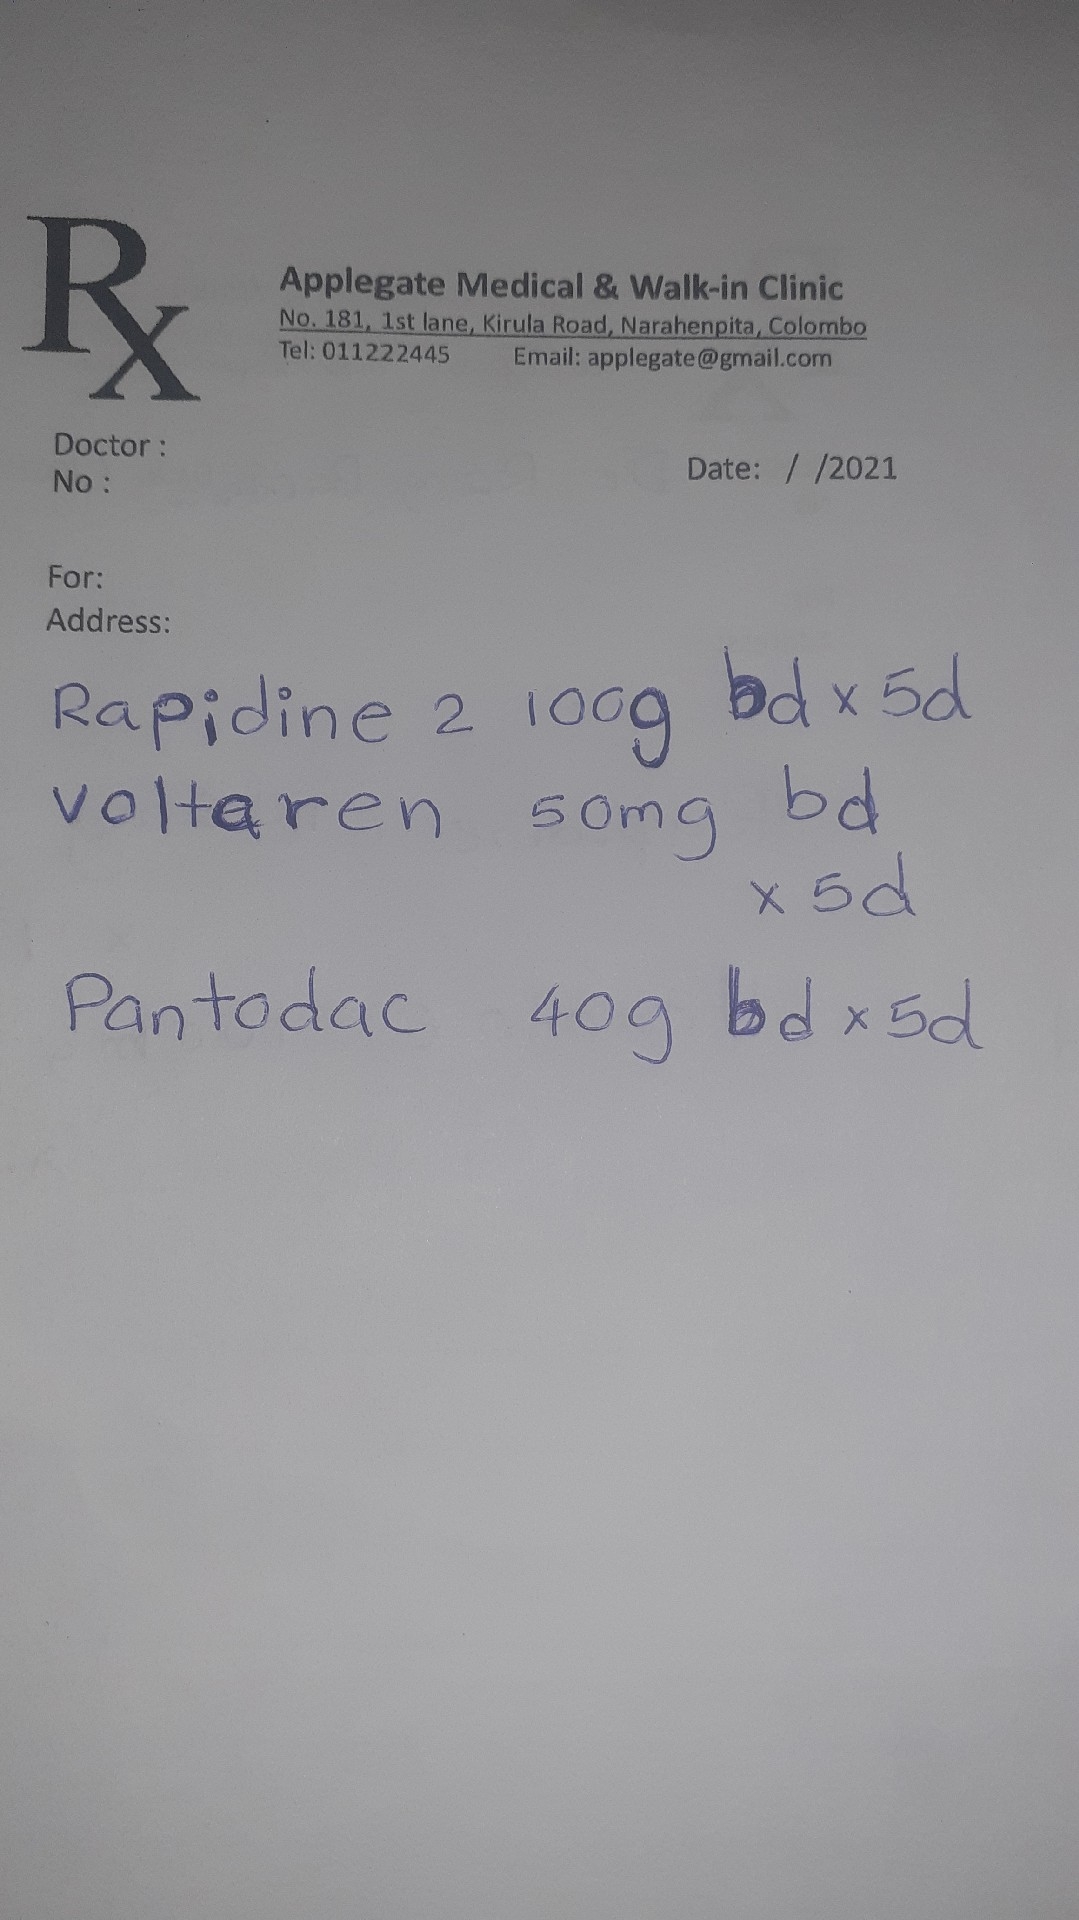 Rx
Applegate Medical & Walk-in Clinic
No. 181, 1st lane, Kirula Road, Narahenpita, Colombo
Tel: 011222445 Email: applegate@gmail.com
Doctor :
No :
Date: / /2021
For:
Address:
Rapidine 2 100g bd x 5d
voltaren 50mg bd
x 5d
Pantodac 40g bd x 5d